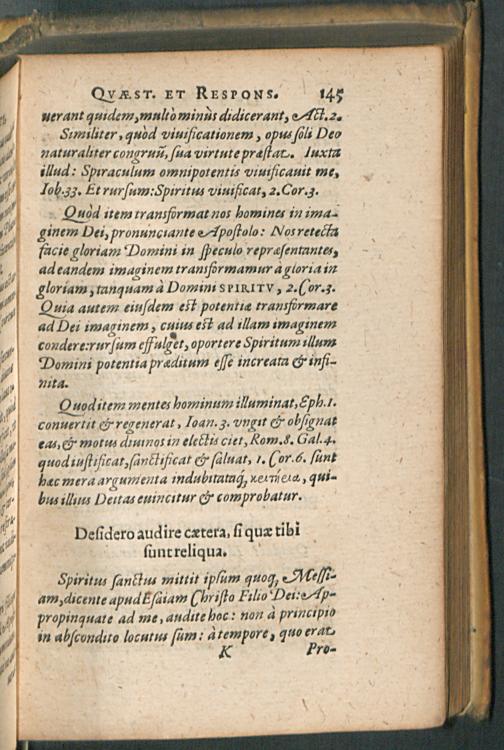 QVÆST. ET RESPONS. 145
uerant quidem, multò minùs didicerant, Act. 2.
Similiter, quòd viuificationem, opus soli Deo
naturaliter congruũ, sua virtute præstat. Iuxta
illud: Spiraculum omnipotentis viuificauit me,
Iob. 33. Et rursum: Spiritus viuificat, 2. Cor. 3.
Quòd item transformat nos homines in ima-
ginem Dei, pronunciante Apostolo: Nos retecta
facie gloriam Domini in speculo repræsentantes,
ad eandem imaginem transformamur à gloria in
gloriam, tanquam à Domini SPIRITV, 2. Cor. 3.
Quia autem eiusdem est potentiæ transformare
ad Dei imaginem, cuius est ad illam imaginem
condere: rursum effulget, oportere Spiritum illum
Domini potentia præditum esse increata & infi-
nita.
Quod item mentes hominum illuminat, Eph. 1.
conuertit & regenerat, Ioan. 3. vngit & obsignat
eas, & motus diuinos in electis ciet, Rom. 8. Gal. 4.
quod iustificat, sanctificat & saluat, 1. Cor. 6. sunt
hæc mera argumenta indubitataq́,  qui-
bus illius Deitas euincitur & comprobatur.
Desidero audire cætera, si quæ tibi
sunt reliqua.
Spiritus sanctus mittit ipsum quoq, Messi-
am, dicente apud Esaiam Christo Filio Dei: Ap-
propinquate ad me, audite hoc: non à principio
in abscondito locutus sum: à tempore, quo erat
K Pro-